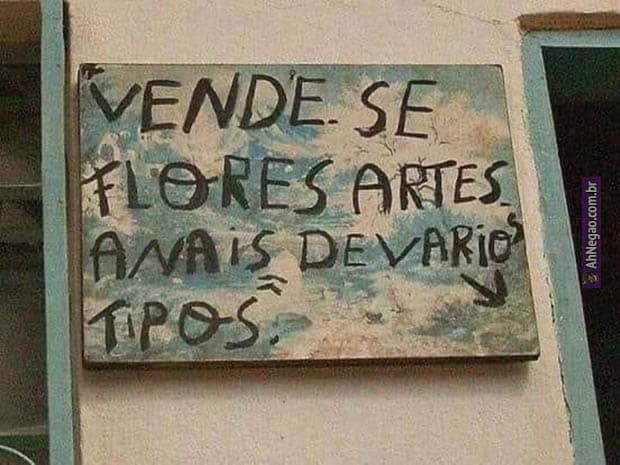 VENDE-SE
FLORES ARTES-
ANAIS DE VARIOS
TIPOS.
AhNegao.com.br